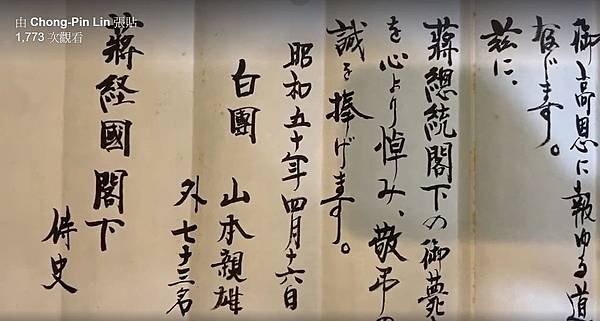 由 Chong-Pin Lin 張貼
1,773 次觀看
御高恩に報ゆる道
存じます。
茲に、
蔣總統閣下の御薨
を心より悼み、敬弔の
誠を捧げます。
昭和五十年四月十六日
白團 山本親雄
外七十三名
蔣経國閣下
侍史